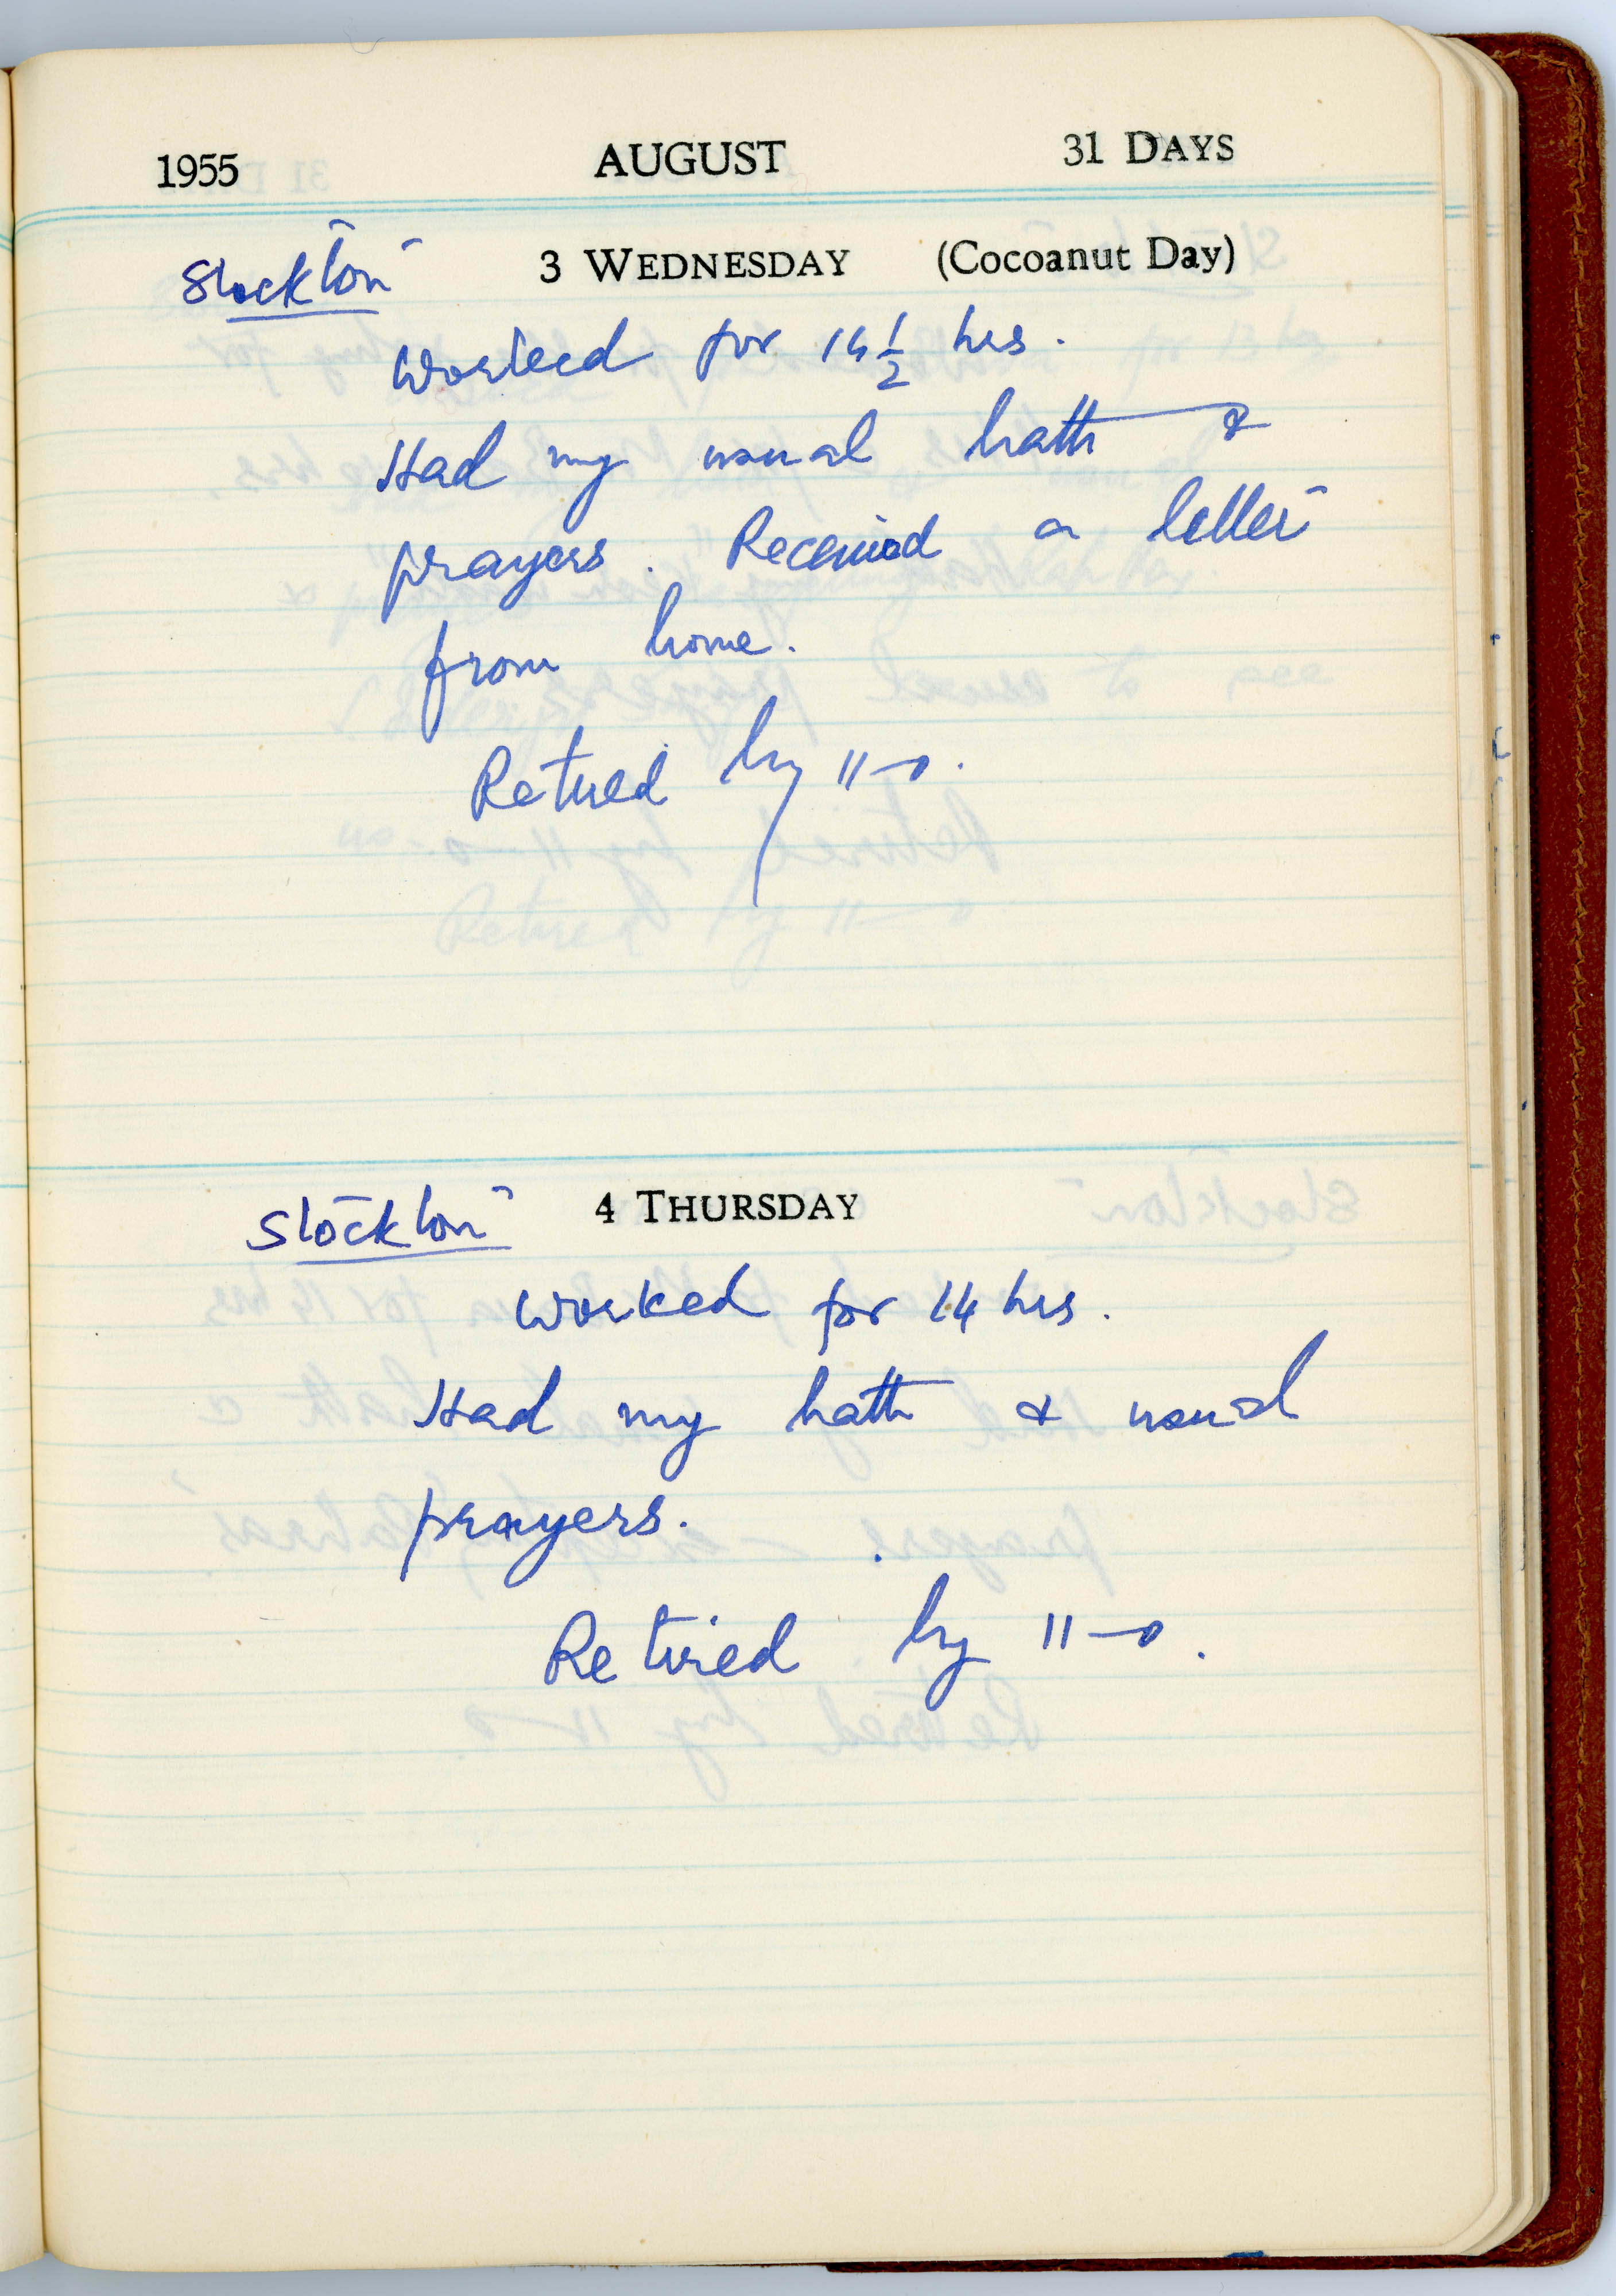 1955 AUGUST 31 DAYS
Stockton 3 WEDNESDAY (Cocoanut Day)
Worked for 14 1/2 hrs.
Had my usual bath &
prayers. Received a letter
from home.
Retired by 11-0.
Stockton 4 THURSDAY
Worked for 14 hrs.
Had my bath & usual
prayers.
Retired by 11-0.